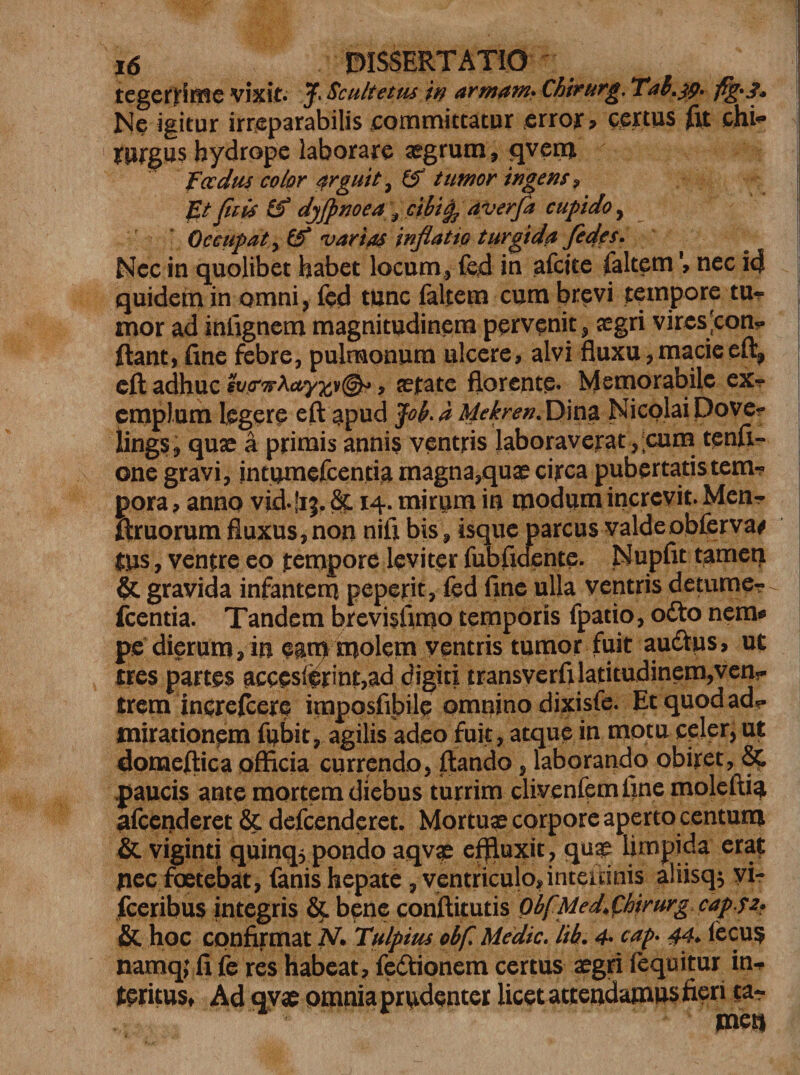 16 DISSERTATIO
tegerrime vixit. J. Scultetus in armam. Chirurg. Tab.39. fig.3.
Ne igitur irreparabilis committatur error, certus ſit chi-
rurgus hydrope laborare ægrum, qvem
Fœdus color arguit, & tumor ingens,
Et ſitis & dyſpnoea, cibiq; averſa cupido,
Occupat, & varias inflatio turgida ſedes.
Nec in quolibet habet locum, ſed in aſcite ſaltem, nec id
quidem in omni, ſed tunc ſaltem cum brevi tempore tu-
mor ad inſignem magnitudinem pervenit, ægri vires con-
ſtant, ſine febre, pulmonum ulcere, alvi fluxu, macie eſt,
eſt adhuc ἐυσπλαγχν@, ætate florente. Memorabile ex-
emplum legere eſt apud Job. à Mekren. Dina Nicolai Dove-
lings, quæ à primis annis ventris laboraverat, cum tenſi-
one gravi, intumeſcentia magna, quæ circa pubertatis tem-
pora, anno vid. 13. & 14. mirum in modum increvit. Men-
ſtruorum fluxus, non niſi bis, isque parcus valde obſerva-
tus, ventre eo tempore leviter ſubſidente. Nupſit tamen
& gravida infantem peperit, ſed ſine ulla ventris detume-
ſcentia. Tandem brevisſimo temporis ſpatio, octo nem-
pe dierum, in eam molem ventris tumor fuit auctus, ut
tres partes accesſerint, ad digiti transverſi latitudinem, ven-
trem increſcere imposſibile omnino dixisſe. Et quod ad-
mirationem ſubit, agilis adeo fuit, atque in motu celer, ut
domeſtica officia currendo, ſtando, laborando obiret, &
paucis ante mortem diebus turrim clivenſem ſine moleſtia
aſcenderet & deſcenderet. Mortuæ corpore aperto centum
& viginti quinq; pondo aqvæ effluxit, quæ limpida erat
nec fœtebat, ſanis hepate, ventriculo, inteſtinis aliisq; vi-
ſceribus integris & bene conſtitutis Obſ. Med. Chirurg. cap. 52.
& hoc confirmat N. Tulpius obſ. Medic. lib. 4. cap. 44. ſecus
namq; ſi ſe res habeat, ſectionem certus ægri ſequitur in-
teritus. Ad qvæ omnia prudenter licet attendamus fieri ta-
men